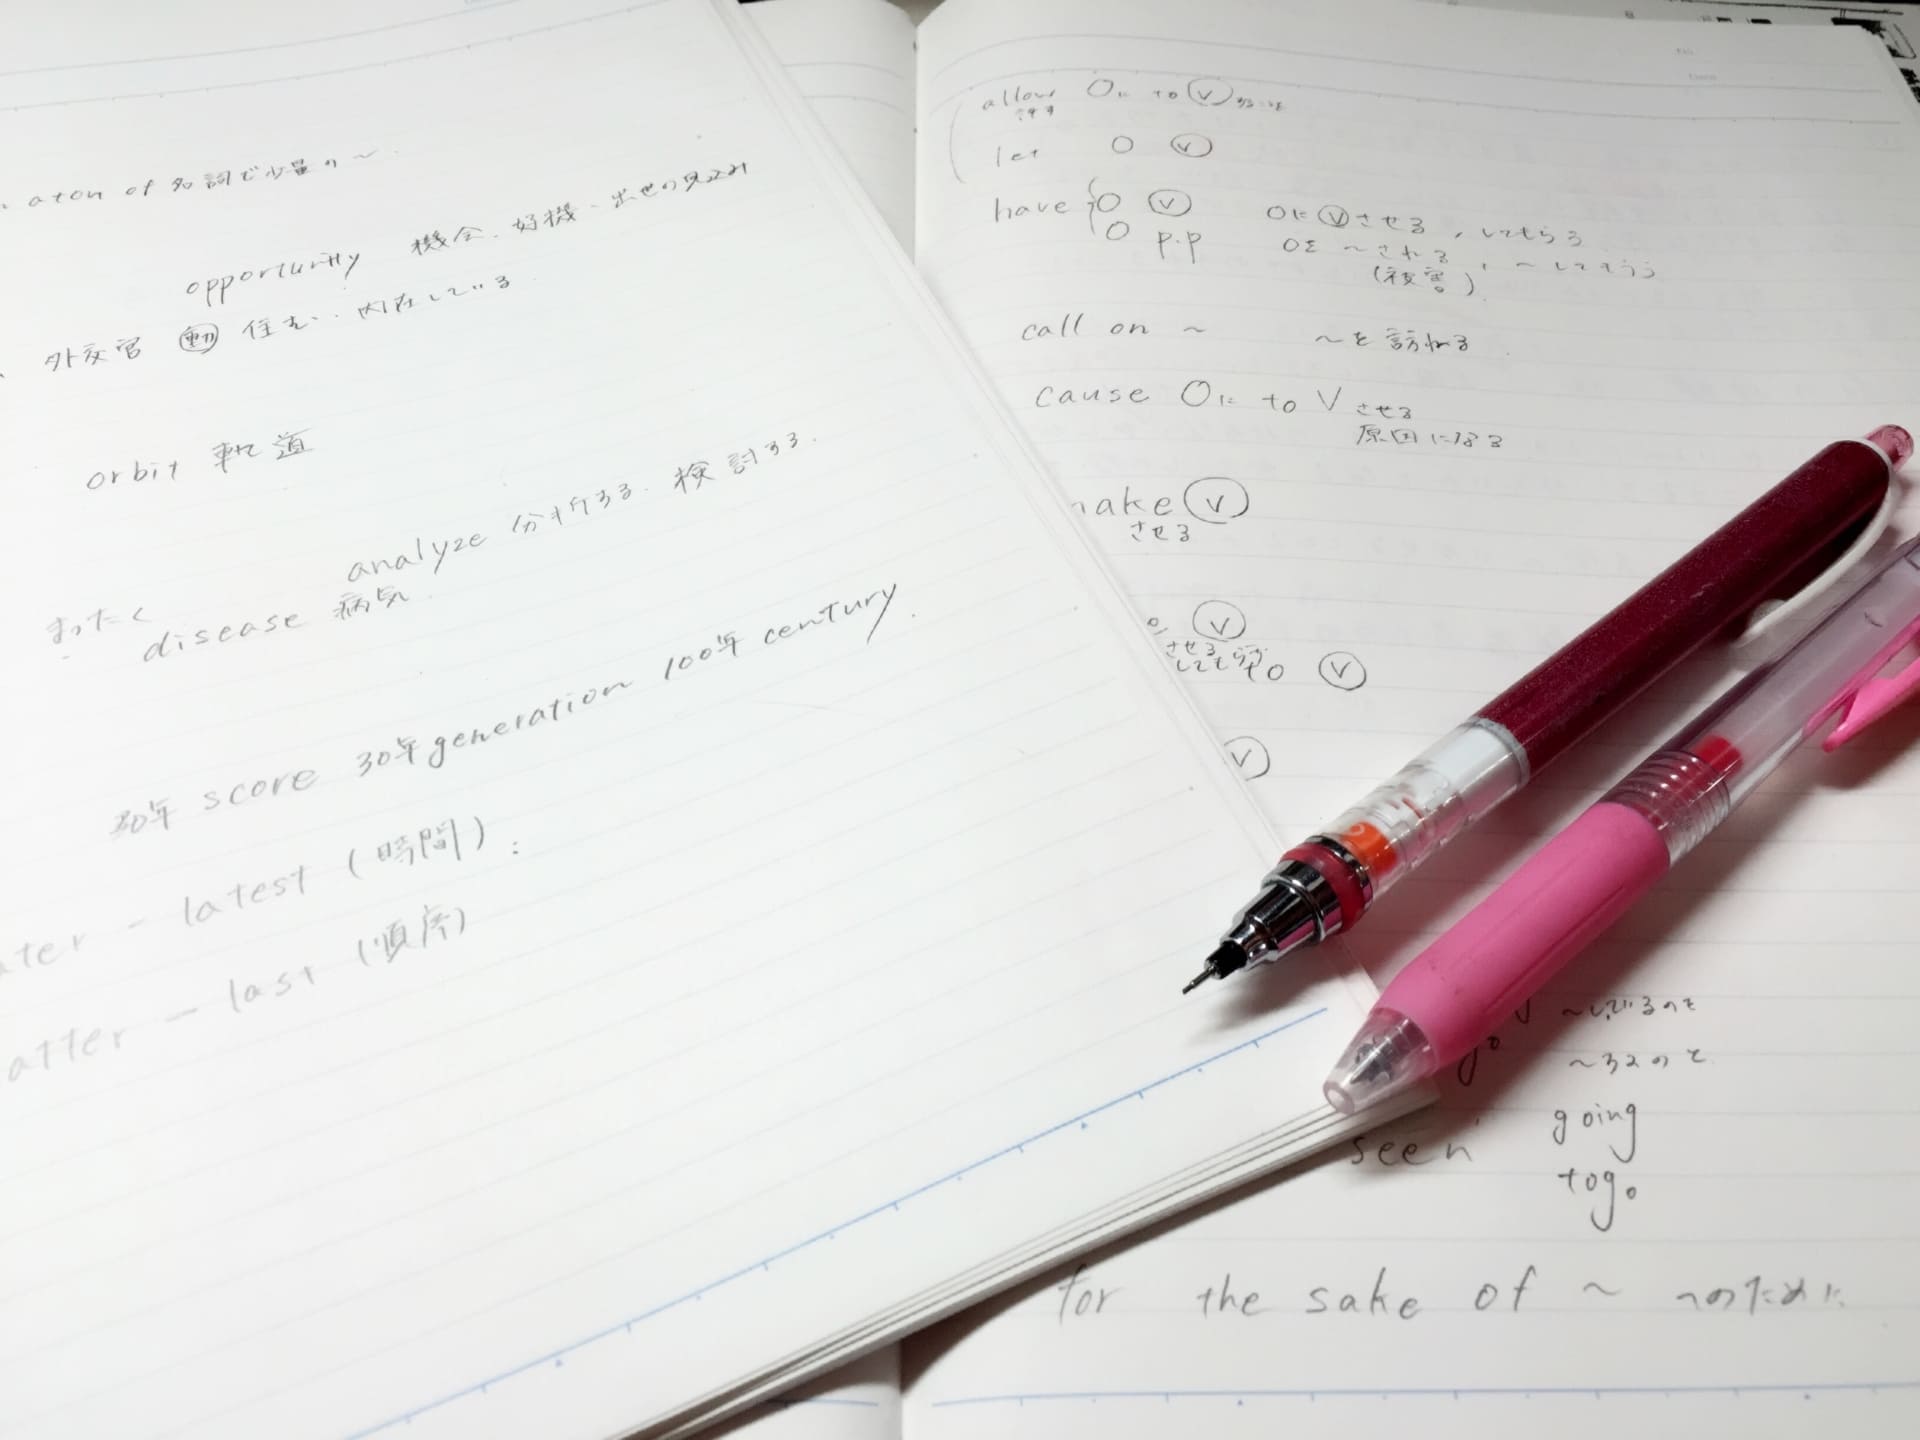 aton of 名詞で少量の〜
opportunity 機会、好機、出世の見込み
外交官 動 住む、内在している
orbit 軌道
analyze 分析する、検討する
まったく
disease 病気
30年 score 30年 generation 100年 century
ater – latest (時間)
atter – last (順序)
allow Oに to V すること
許す
let O V
have O V Oに V させる、してもらう
O p.p Oを 〜される、〜してもらう
(被害)
call on 〜 〜を訪れる
cause Oに to V させる
原因になる
make V
させる
V
させる
してもらう to V
V
〜しているのを
go 〜するのを
seen going
to go
for the sake of 〜 〜のために